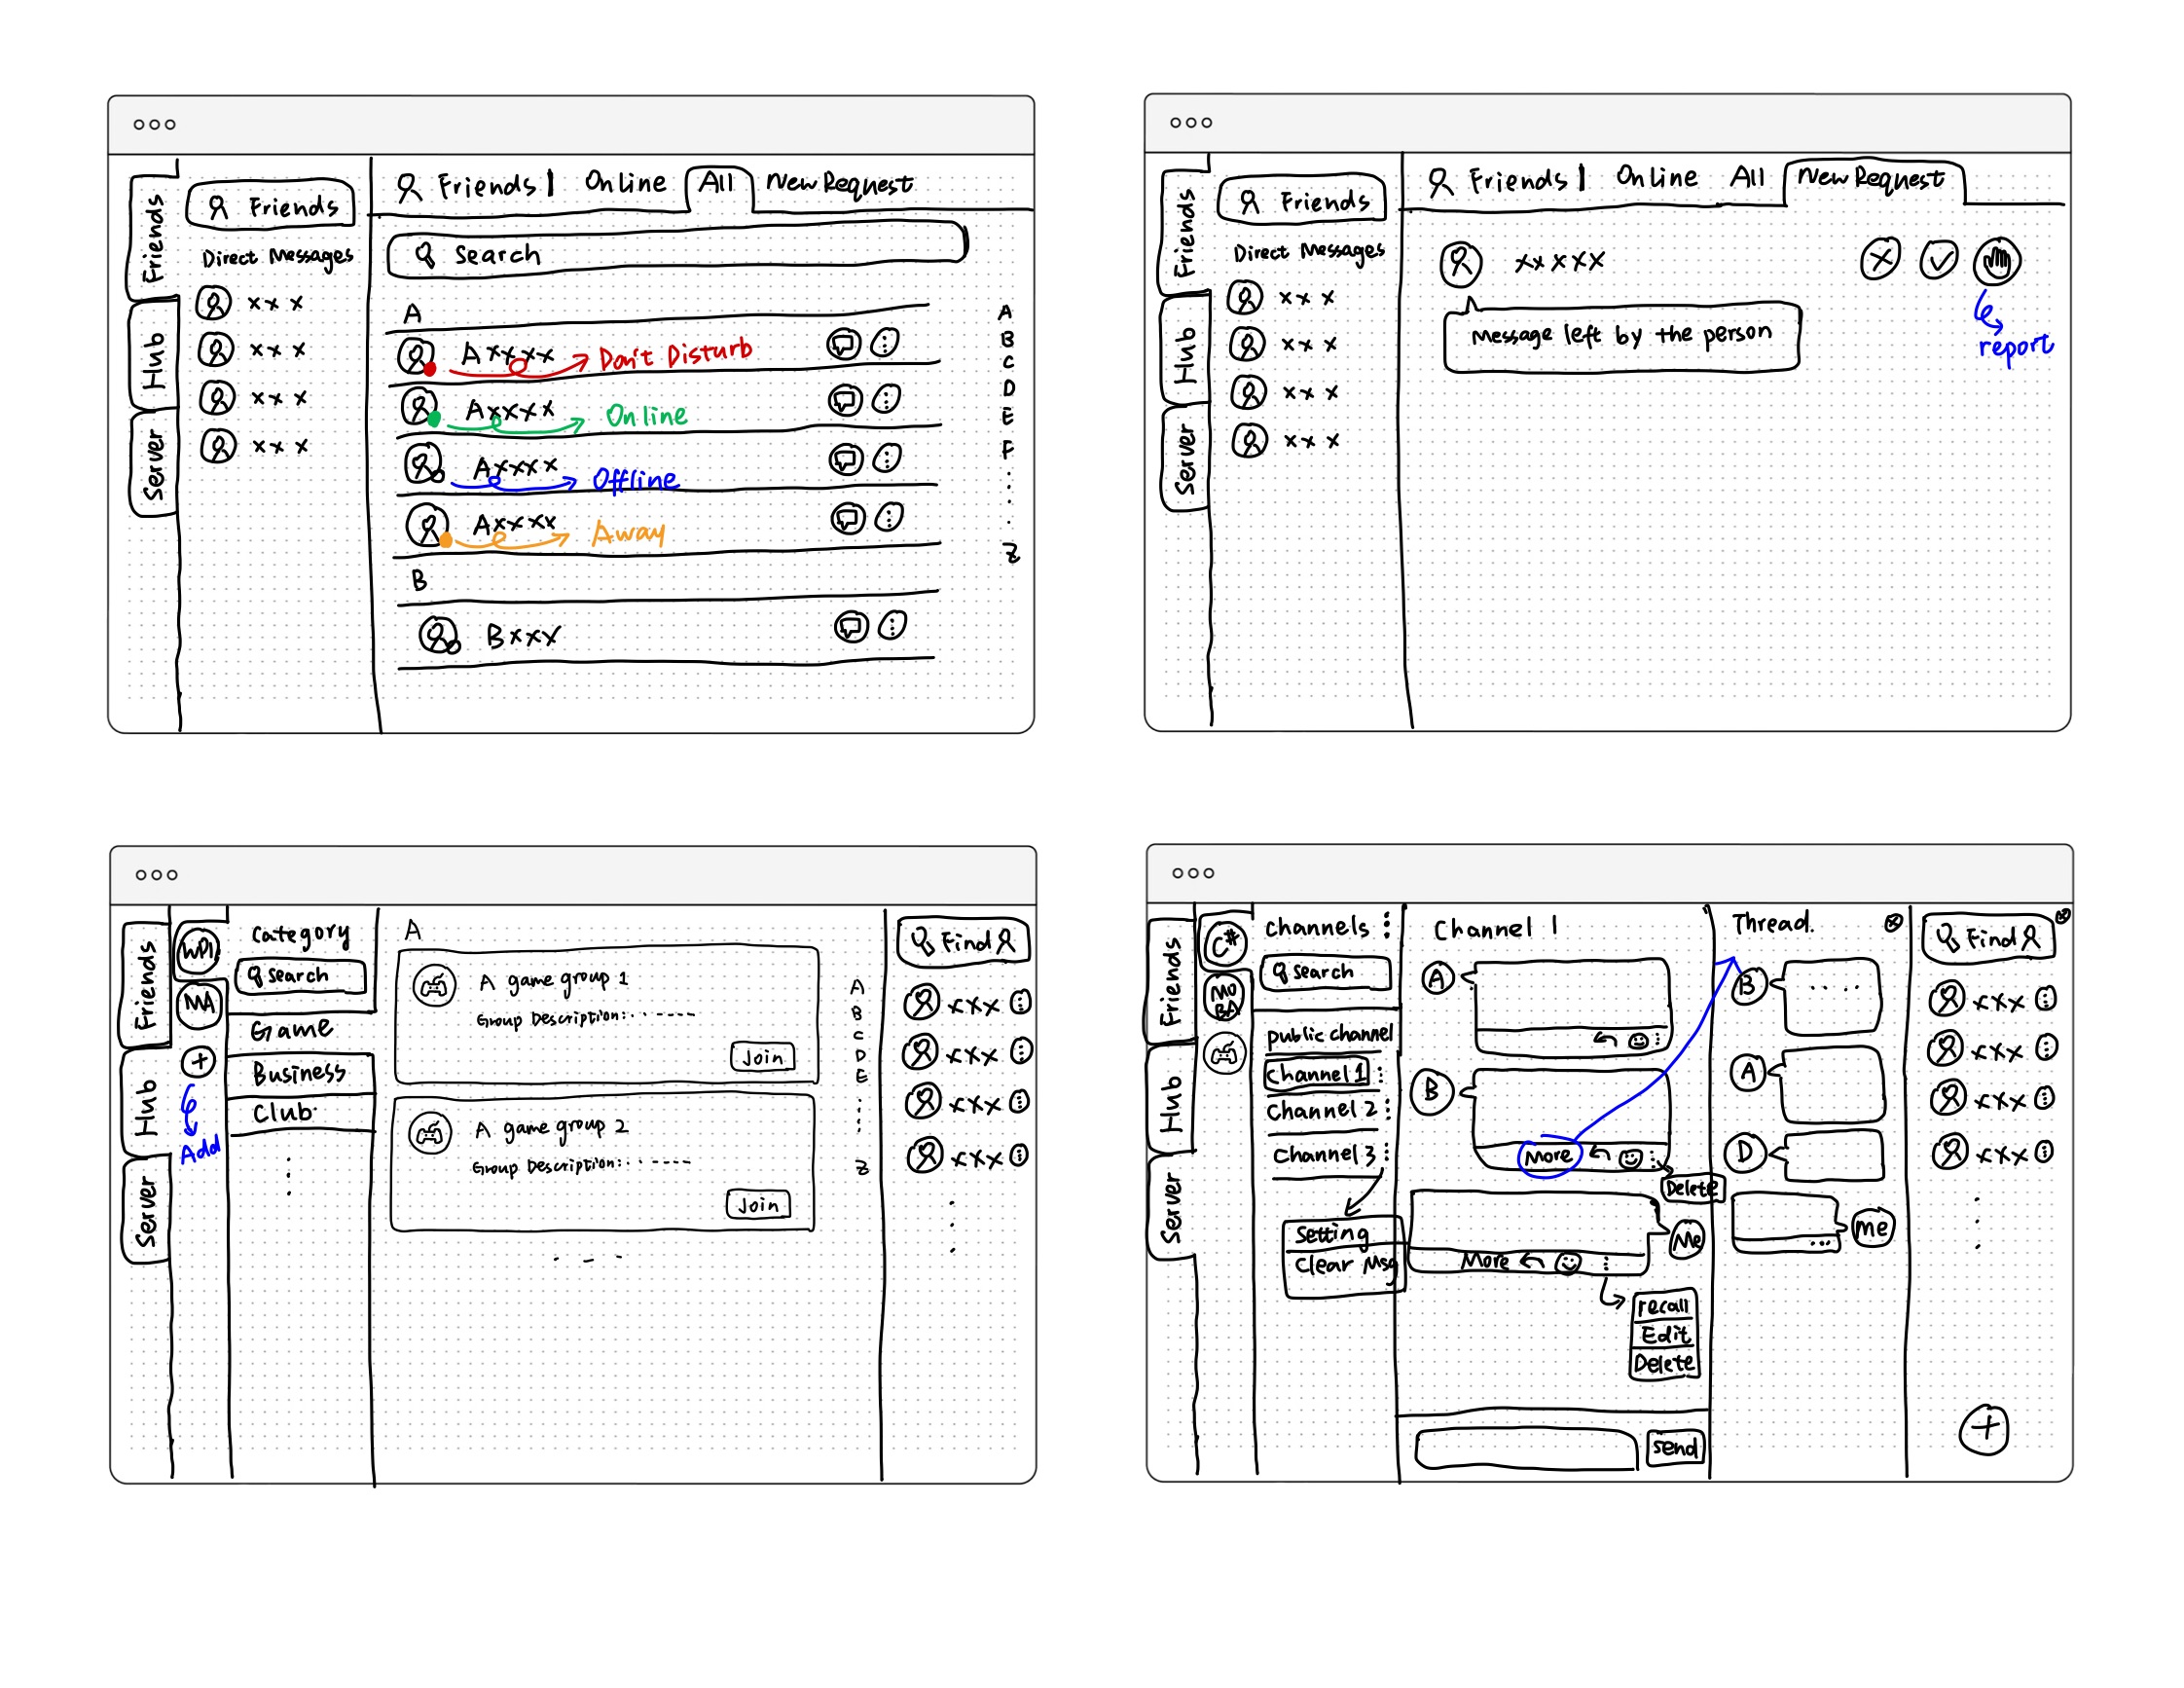 Friends
Hub
Server
Friends
Direct Messages
x x x
x x x
x x x
x x x
Friends | Online All New Request
Search
A
Axxxx Don't Disturb
Axxxx Online
Axxxx Offline
Axxxx Away
B
Bxxx
A
B
C
D
E
F
Z
Friends
Hub
Server
Friends
Direct Messages
x x x
x x x
x x x
x x x
Friends | Online All New Request
xxxxx
report
Message left by the person
Friends
Hub
Server
WPI
MA
+
Add
Category
Search
Game
Business
Club
A
A game group 1
Group Description:
Join
A game group 2
Group Description:
Join
A
B
C
D
E
Z
Find
xxx
xxx
xxx
xxx
Friends
Hub
Server
C#
MO
BA
Channels
Search
public channel
Channel 1
Channel 2
Channel 3
Setting
Clear Msg
Channel 1
A
B
More
Delete
Me
More
recall
Edit
Delete
send
Thread.
B
A
D
me
Find
xxx
xxx
xxx
xxx
+